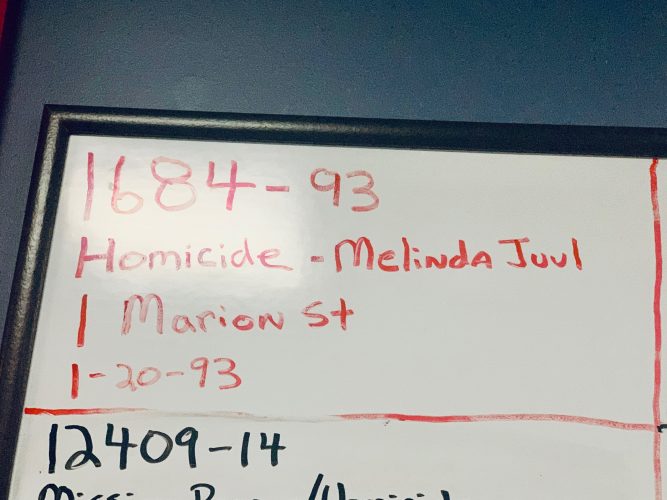 1684-93
Homicide - Melinda Juul
1 Marion St
1-20-93
12409-14